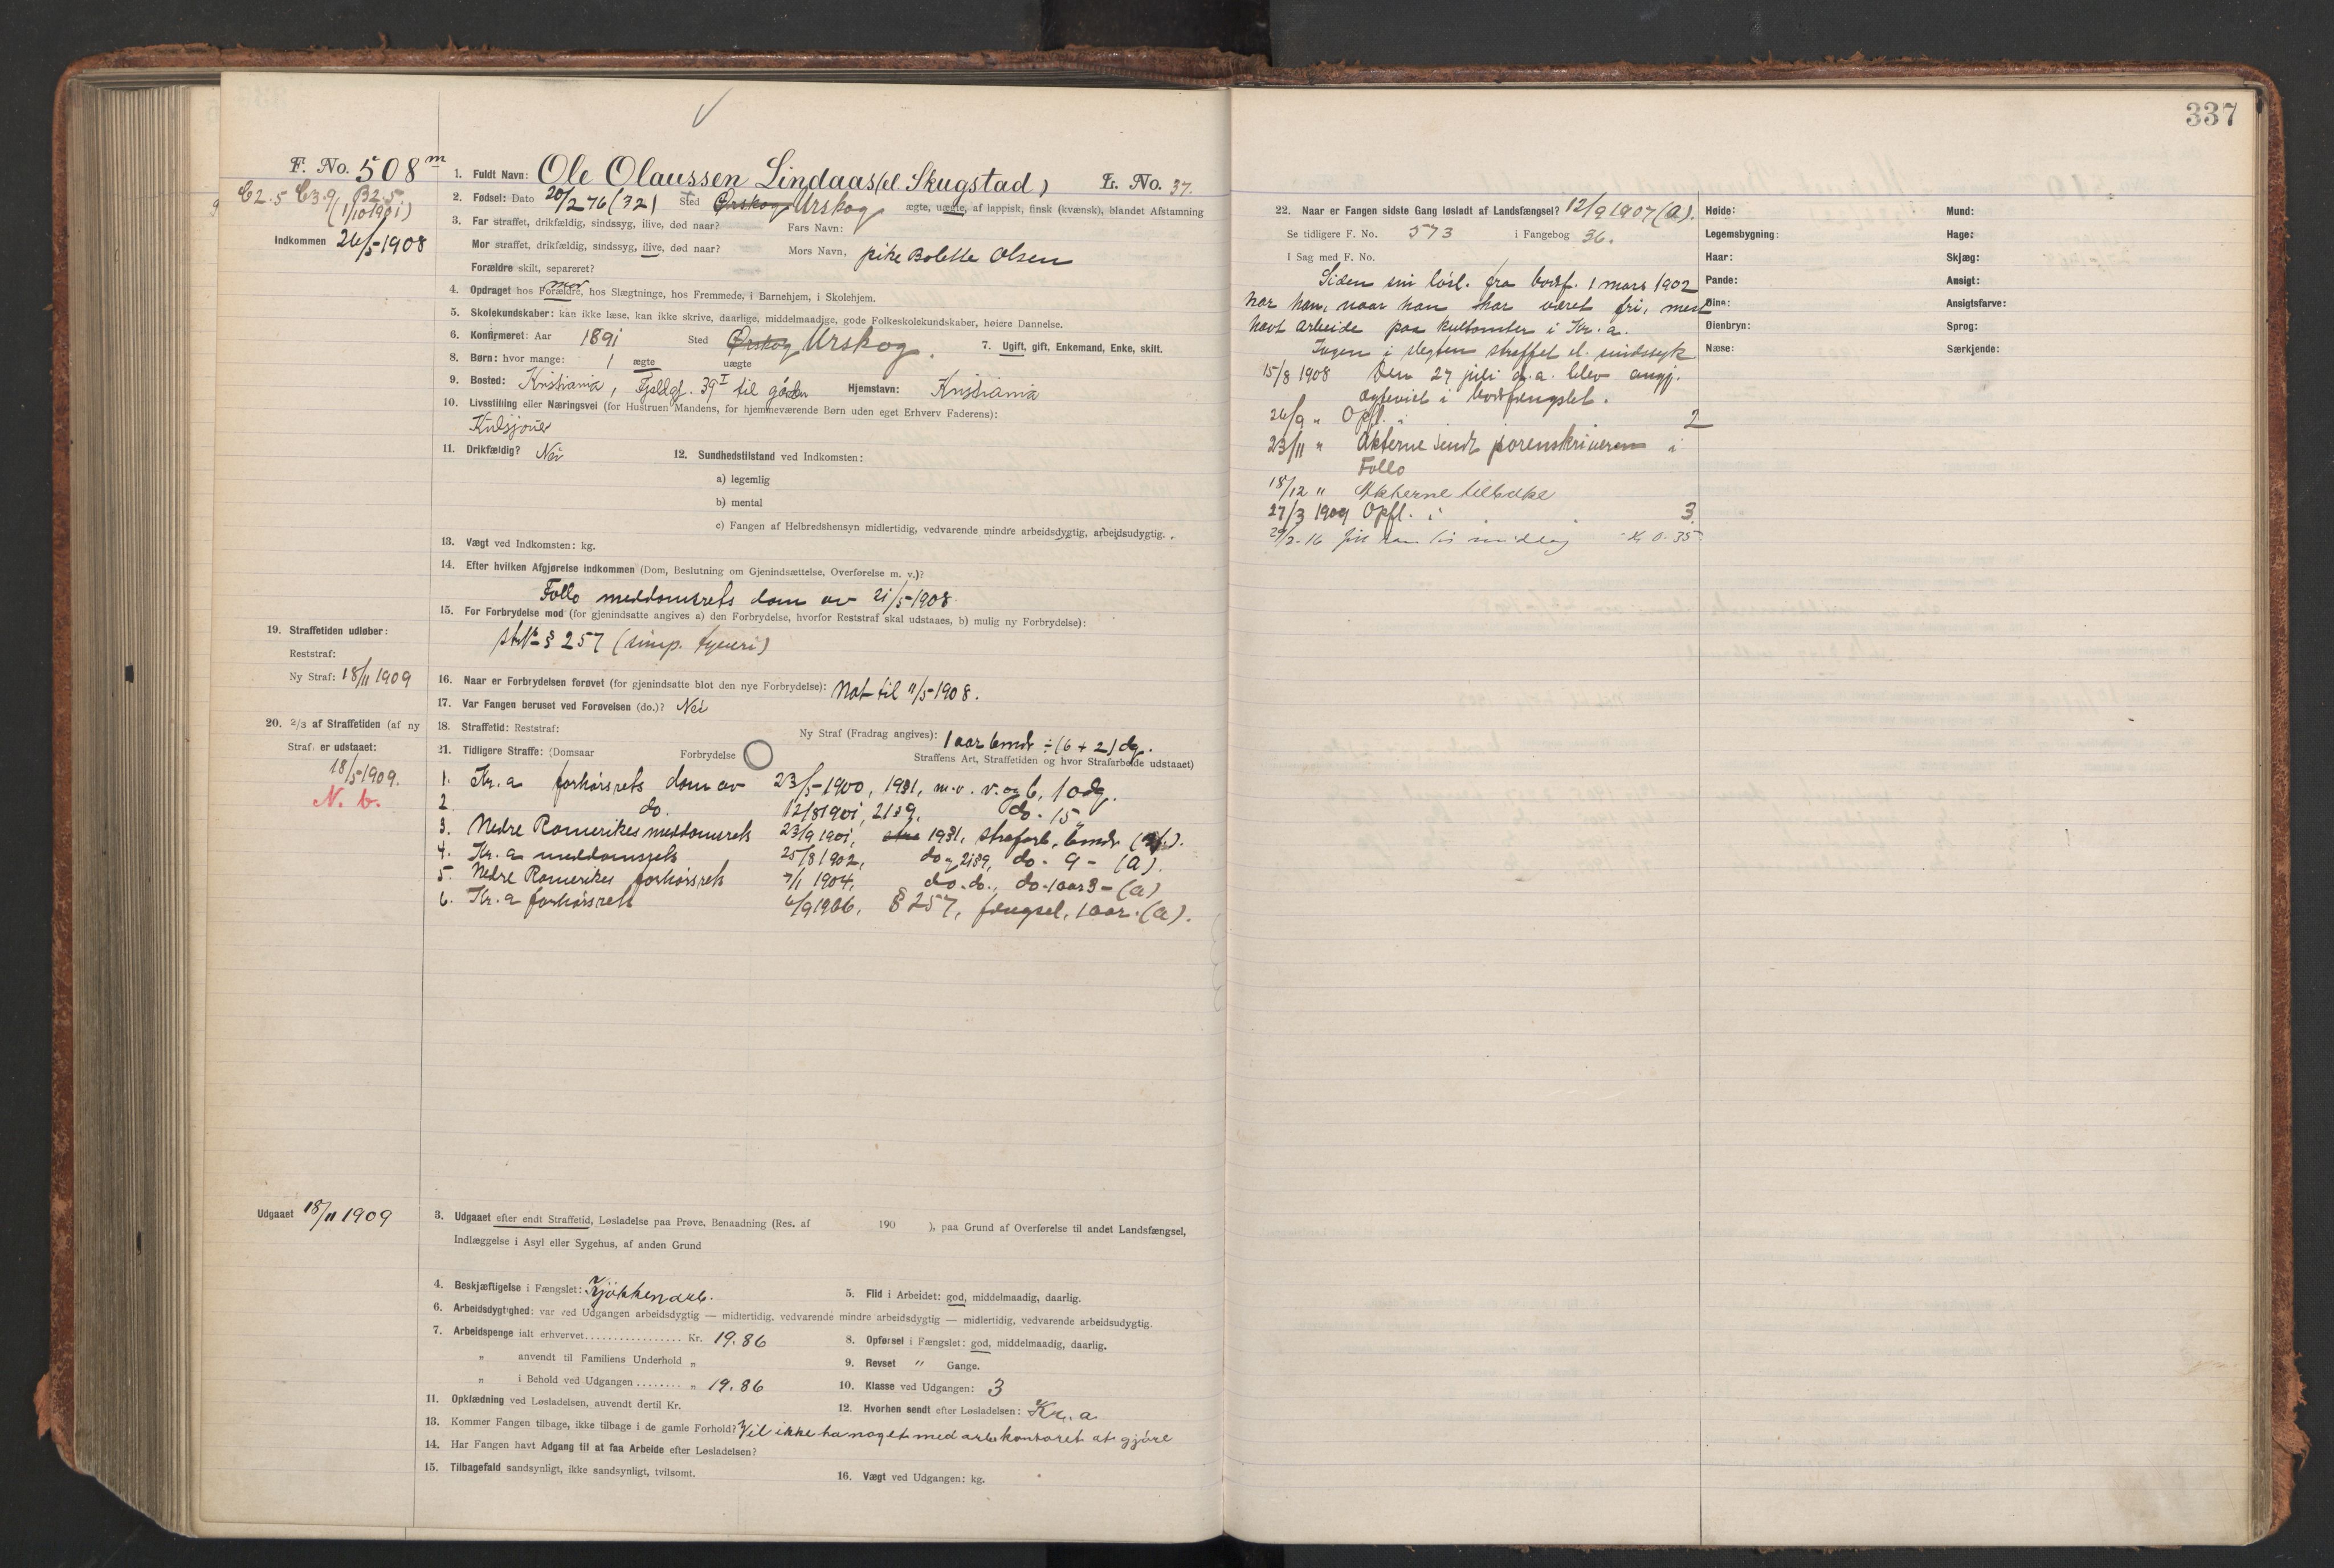 337
F. No. 508 m
C2.5 C3.9 B2.5
(1/10 1901)
Indkommen 26/5-1908
1. Fuldt Navn: Ole Olaussen Lindaas (el. Skugstad) L. No. 37.
2. Fødsel: Dato 20/2 76 (32) Sted Ørskog Urskog ægte, uægte, af lappisk, finsk (kvænsk), blandet Afstamning
3. Far straffet, drikfældig, sindssyg, ilive, død naar? Fars Navn:
Mor straffet, drikfældig, sindssyg, ilive, død naar? Mors Navn, pike Bolette Olsen
Forældre skilt, separeret?
4. Opdraget hos Forældre, mor hos Slægtninge, hos Fremmede, i Barnehjem, i Skolehjem.
5. Skolekundskaber: kan ikke læse, kan ikke skrive, daarlige, middelmaadige, gode Folkeskolekundskaber, høiere Dannelse.
6. Konfirmeret: Aar 1891 Sted Ørskog Urskog. 7. Ugift, gift, Enkemand, Enke, skilt.
8. Børn: hvor mange: 1 ægte uægte
9. Bosted: Kristiania, Fjeldg. 39 I til gården Hjemstavn: Kristiania
10. Livsstilling eller Næringsvei (for Hustruen Mandens, for hjemmeværende Børn uden eget Erhverv Faderens):
Kulsjouer
11. Drikfældig? Nei 12. Sundhedstilstand ved Indkomsten:
a) legemlig
b) mental
c) Fangen af Helbredshensyn midlertidig, vedvarende mindre arbeidsdygtig, arbeidsudygtig.
13. Vægt ved Indkomsten: kg.
14. Efter hvilken Afgjørelse indkommen (Dom, Beslutning om Gjenindsættelse, Overførelse m. v.)?
Follo meddomsrets dom av 21/5-1908
15. For Forbrydelse mod (for gjenindsatte angives a) den Forbrydelse, hvorfor Reststraf skal udstaaes, b) mulig ny Forbrydelse):
§ 257 (simp. tyveri)
19. Straffetiden udløber:
Reststraf:
Ny Straf: 18/11 1909
16. Naar er Forbrydelsen forøvet (for gjenindsatte blot den nye Forbrydelse): Nat til 11/5-1908.
17. Var Fangen beruset ved Forøvelsen (do.)? Nei
20. 2/3 af Straffetiden (af ny
Straf) er udstaaet:
18/5 1909.
N. b.
18. Straffetid: Reststraf: Ny Straf (Fradrag angives): 1 aar 6 mdr ÷ (6 + 2) dg.
21. Tidligere Straffe: (Domsaar Forbrydelse Straffens Art, Straffetiden og hvor Strafarbeide udstaaet)
1. Kr.a forhørsrets dom av 23/5-1900, 1931, m.v. v. og b, 10 dg.
2. do. 12/8 1901, 2139, do - 15 "
3. Nedre Romerikes meddomsrets 23/9 1901, 1931, strafarb, 6 mdr
4. Kr.a meddomsrets 25/8 1902, do og 2139, do - 9 - (a).
5. Nedre Romerikes forhørsrets 7/1 1904, do. do., do - 1 aar 3 - (a)
6. Kr.a forhørsrets 6/9 1906, § 257, fængsel, 1 aar. (a).
Udgaaet 18/11 1909
3. Udgaaet efter endt Straffetid, Løsladelse paa Prøve, Benaadning (Res. af 190 ), paa Grund af Overførelse til andet Landsfængsel,
Indlæggelse i Asyl eller Sygehus, af anden Grund
4. Beskjæftigelse i Fængslet: Kjøkkenarb. 5. Flid i Arbeidet: god, middelmaadig, daarlig.
6. Arbeidsdygtighed: var ved Udgangen arbeidsdygtig — midlertidig, vedvarende mindre arbeidsdygtig — midlertidig, vedvarende arbeidsudygtig.
7. Arbeidspenge ialt erhvervet................. Kr. 19.86 8. Opførsel i Fængslet: god, middelmaadig, daarlig.
„ anvendt til Familiens Underhold „ 9. Revset " Gange.
„ i Behold ved Udgangen ........ „ 19.86 10. Klasse ved Udgangen: 3
11. Opklædning ved Løsladelsen, anvendt dertil Kr. 12. Hvorhen sendt efter Løsladelsen: Kr.a
13. Kommer Fangen tilbage, ikke tilbage i de gamle Forhold? Vil ikke ha noget med arb. kontoret at gjøre
14. Har Fangen havt Adgang til at faa Arbeide efter Løsladelsen?
15. Tilbagefald sandsynligt, ikke sandsynligt, tvilsomt. 16. Vægt ved Udgangen: kg.
22. Naar er Fangen sidste Gang løsladt af Landsfængsel? 12/9 1907 (a).
Se tidligere F. No. 573 i Fangebog 36.
I Sag med F. No.
Siden sin løsl. fra bodsf. 1 mars 1902
har han, naar han har været fri, mest
havt arbeide paa kultomter i Kr.a.
Ingen i slegten straffet el. sindssyk
15/8 1908 Den 27 juli d.a. blev angj.
i bodsfengslet.
26/9 " Opfl. i 2
23/11 " Akterne sendt sorenskriveren i
Follo
18/12 " Akterne tilbake
27/3 1909 Opfl. i 3.
middag Kr 0.35
Høide: Mund:
Legemsbygning: Hage:
Haar: Skjæg:
Pande: Ansigt:
Øine: Ansigtsfarve:
Øienbryn: Sprog:
Næse: Særkjende: